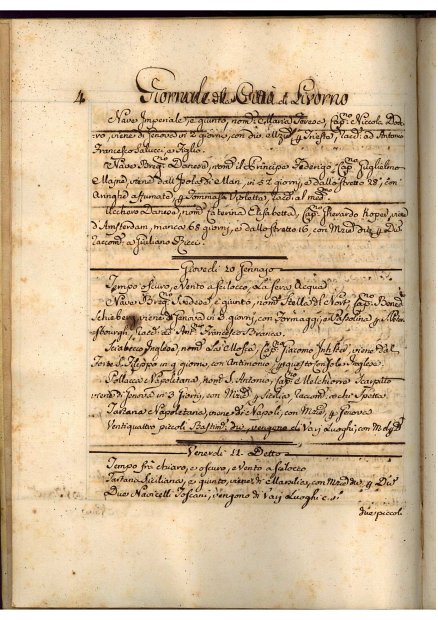 4. Giornale della Città di Livorno
Nave Imperiale, è quinto, nom.ª Maria Teresa, Cap.º Niccola Dod-
ro, viene di Genova in 2 giorni, con div. Mizi, p. Trieste, racc. ad Antonio
Francesco Salucci, e Figlio.
Nave Brig. Danese, nom. il Principe Federigo, Cap.º Guglielmo
viene dall'Isola di Man, in 52 giorni, e dallo stretto 28, con
Aringhe affumate, p. Tommaso Violetta, racc. al med.
Uchero Danese, nom. Caterina Elisabetta, Cap. Gherardo Koper, viene
d'Amsterdam, manca 68 giorni, e dallo stretto 16, con Mer. div. p. Div.
raccom. a Giuliano Ricci.
Giovedì 10 Gennajo
Tempo oscuro, e Vento a scilocco, La sera Acqua
Nave Brig. Svedese, è quinto, nom. Stella del Nort, Cap.º Bened.
viene di Genova in giorni, con Formaggi, e p.
racc. ad Ant. Francesco Branca.
Sciabecco Inglese, nom. La Mosca, Cap. Giacomo viene dal
Forte S. Filippo in 9 giorni, con Antimonio, p. questo Console Inglese.
Pollacca Napoletana, nom. S. Antonio, Cap.º Melchiorre Scarpitto
viene di Genova in 3 giorni, con Mer. p. Sicilia, raccom. a chi Spetta
Tartana Napoletana, viene di Napoli, con Mer. p. Genova
Ventiquattro piccoli Bastim. div. vengono di Varj Luoghi, con
Venerdì 11. Detto
Tempo frà chiaro, e oscuro, e Vento a scilocco
Tartana Siciliana, è quinto, viene di Marsilia, con Mer. div. p. Div.
Due Navicelli Toscani, vengono di Varj Luoghi c. s.
due piccoli